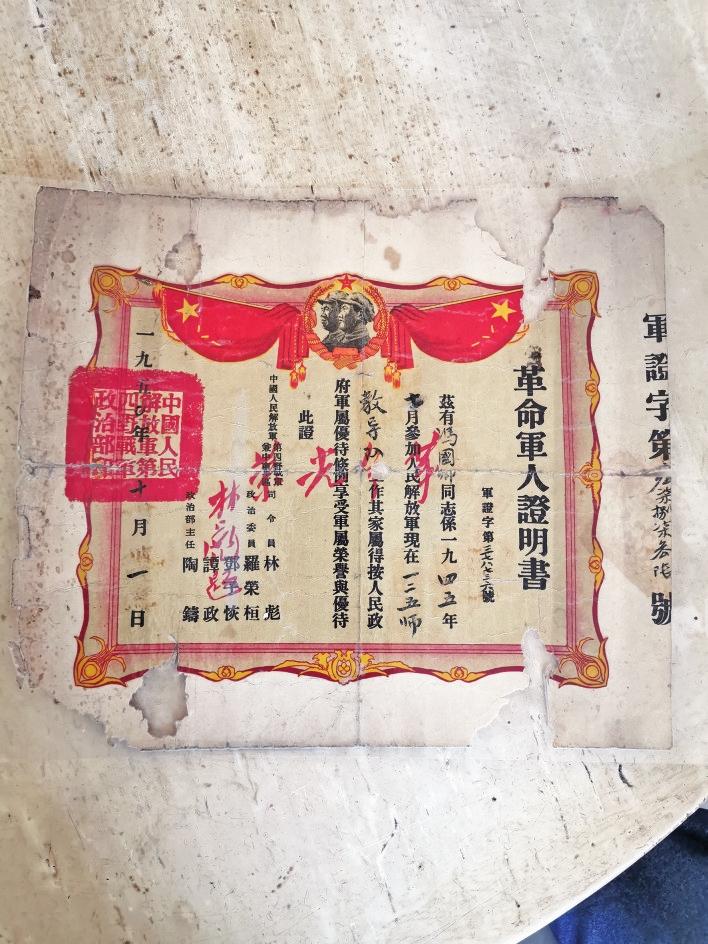 軍證字第 號
革命軍人證明書
軍證字第 號
茲有馮國 同志係一九四五年
七月參加人民解放軍現在一二五師
教导 工作其家屬得按人民政
府軍屬優待條例享受軍屬榮譽與優待
此證
中國人民解放軍第四野戰軍
兼中南軍區
司令員 林彪
政治委員 羅榮桓
鄧子恢
譚政
政治部主任 陶鑄
一九五〇年十一月一日
中國人民
解放軍第
四野戰軍
政治部印
光榮